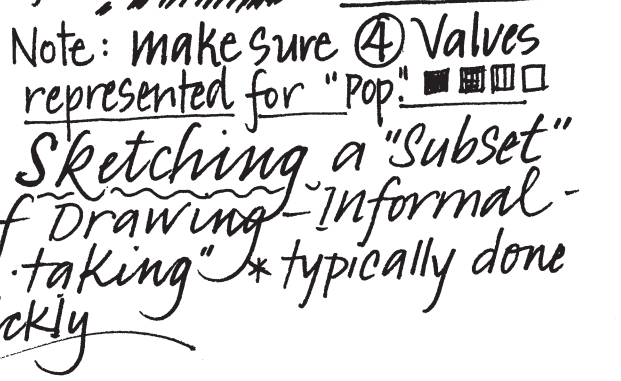 Note: make sure ④ Valves
represented for "Pop."
Sketching a "Subset"
f Drawing - Informal -
·taking" * typically done
ckly